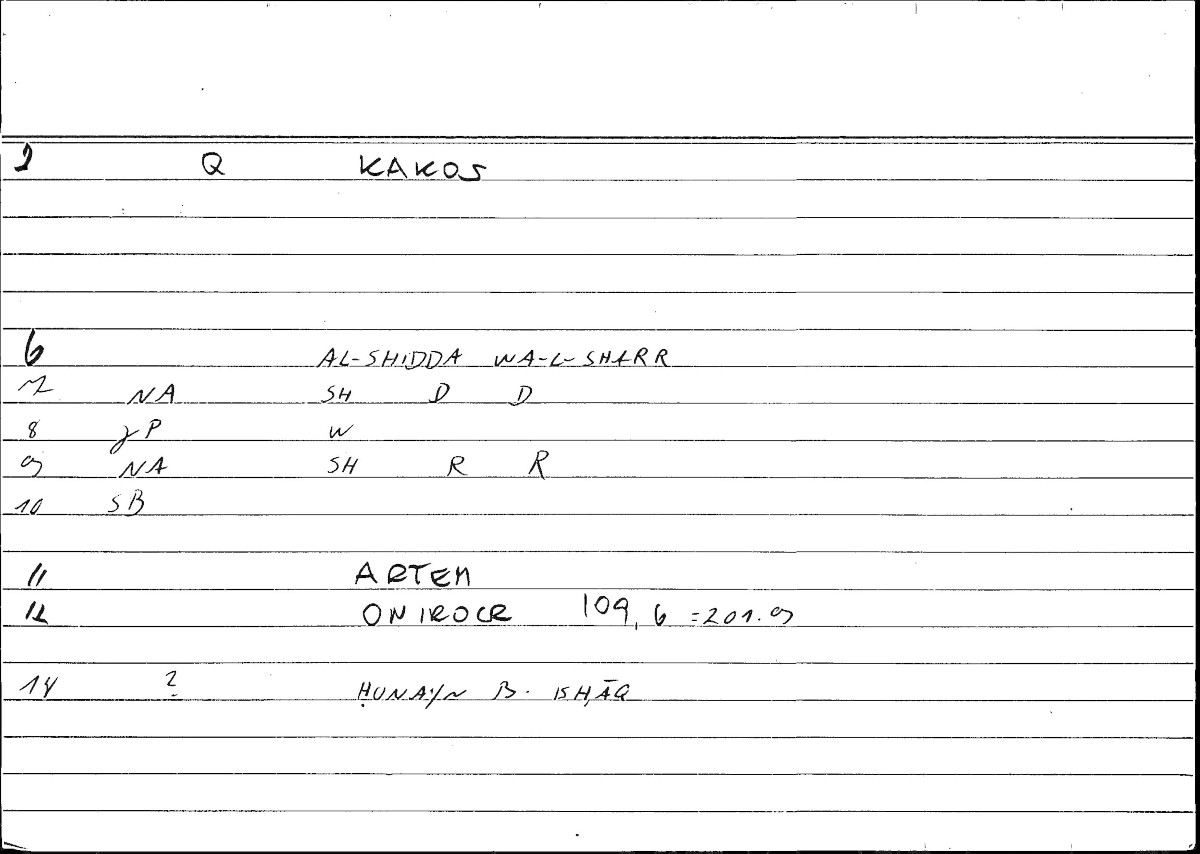 2 Q KAKOS
6 AL-SHIDDA WA-L-SHARR
7 NA SH D D
8 γP W
9 NA SH R R
10 SB
11 ARTEM
12 ONIROCR 109, 6 =201.9
14 2 ḤUNAYN B. ISḤĀQ